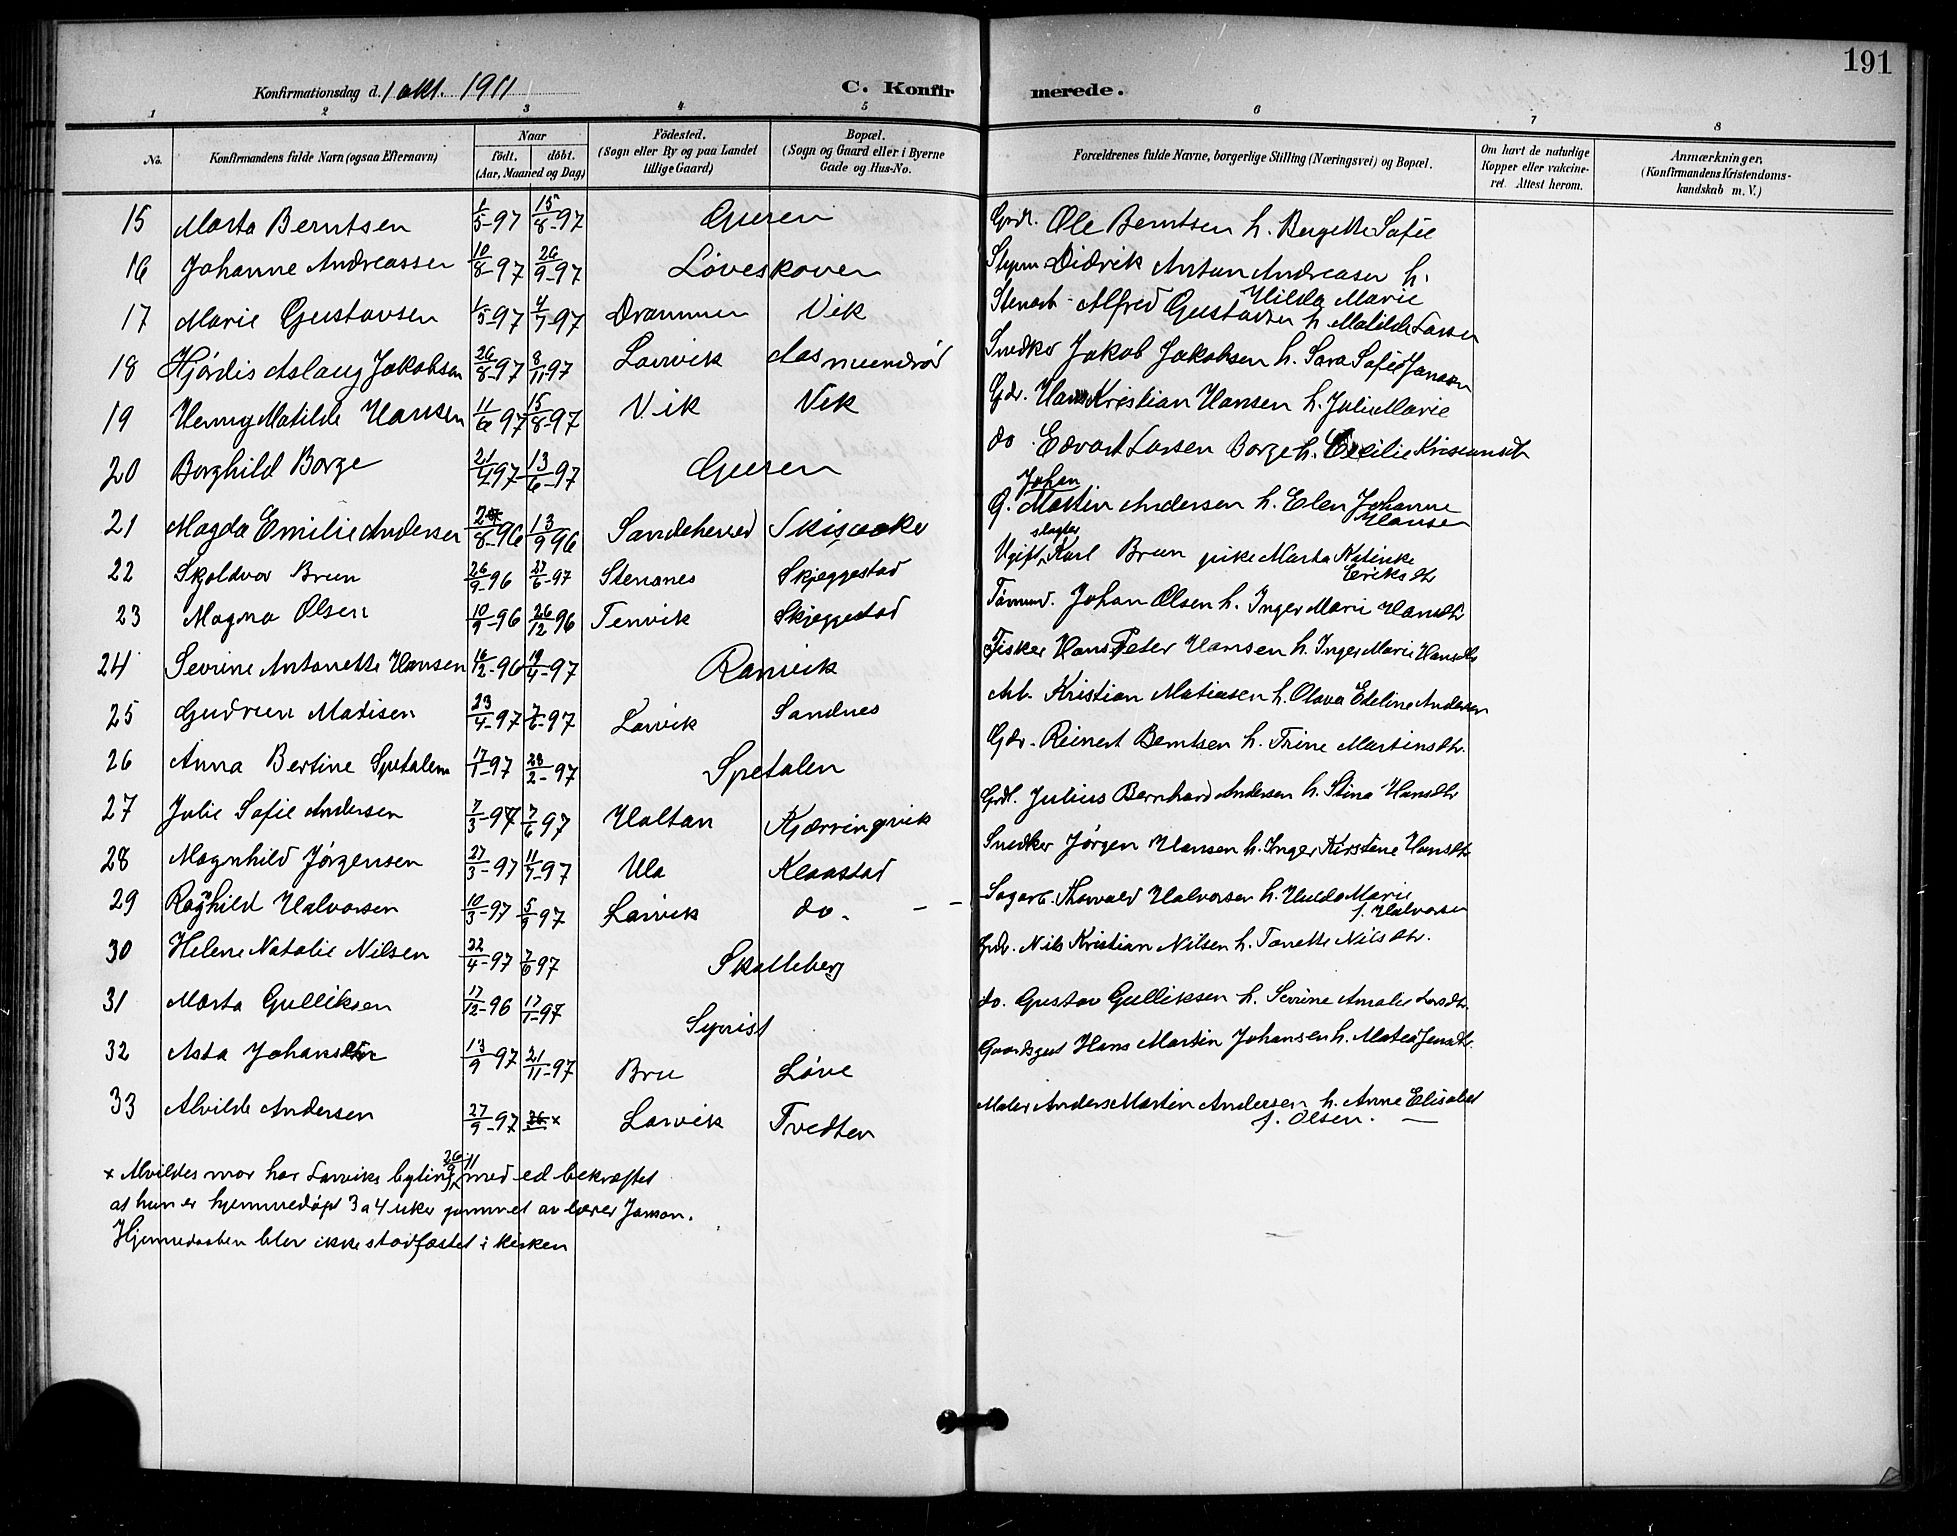 191
Konfirmationsdag d. 1 okt. 1911 C. Konfirmerede.
1 2 3 4 5 6 7 8
No. Konfirmandens fulde Navn (ogsaa Efternavn) Naar født. døbt. (Aar, Maaned og Dag) Fødested. (Sogn eller By og paa Landet tillige Gaard) Bopæl. (Sogn og Gaard eller i Byerne Gade og Hus-No. Forældrenes fulde Navne, borgerlige Stilling (Næringsvei) og Bopæl. Om havt de naturlige Kopper eller vakcineret. Attest herom. Anmærkninger, (Konfirmandens Kristendomskundskab m. V.)
15 Marta Berntsen 1/5-97 15/8-97 Gusen Grdl. Ole Berntsen h. Bergitte Sofie
16 Johanne Andreassen 10/8-97 26/9-97 Løveskoven Styrm Didrik Anton Andreasen h. Hilda Marie
17 Marie Gustavsen 1/5-97 4/7-97 Drammen Vik Stenarb. Alfred Gustavsen h. Matilde Larsen
18 Hjørdis Aslaug Jakobsen 26/8-97 8/11-97 Larvik Aasmundrød Snedker Jakob Jakobsen h. Sara Sofie Jansen
19 Henny Matilde Hansen 11/6-97 15/8-97 Vik Vik Gdr. Hans Kristian Hansen h. Julie Marie
20 Borghild Borge 21/4-97 13/6-97 Gusen do. Edvart Larsen Borge h. Cecilie
21 Magda Emilie Andersen 8-96 13/9-96 Sandeherred G. Johan Martin Andersen h. Elen Johanne Hansen
22 Skjoldvor Brun 26/9-96 27/6-97 Stensnes Skjeggestad Ugift slagter Karl Brun pike Marta Katinke Eriksdtr
23 Magna Olsen 10/9-96 26/12-96 Tenvik Skjeggestad Tømmd. Johan Olsen h. Inger Marie Hansdtr
24 Sevrine Antonette Hansen 16/12-96 19/4-97 Ranvik Fisker Hans Peter Hansen h. Inger Marie Hansdtr
25 Gudrun Matisen 23/4-97 7/6-97 Larvik Sandnes Arb. Kristian Matiasen h. Olava Edeline Andersen
26 Anna Bertine Spetalen 17/1-97 28/2-97 Spetalen Gdr. Reinert Berntsen h. Trine Martinsdtr.
27 Julie Sofie Andersen 7/3-97 7/6-97 Haltan Kjærringvik Grdl. Julius Bernhard Andersen h. Stina Hansdtr
28 Magnhild Jørgensen 27/3-97 11/7-97 Ula Klaastad Snedker Jørgen Hansen h. Inger Kirstine Hansdtr
29 Ragnhild Halvorsen 10/3-97 5/9-97 Larvik do. - - Sagarb. Thorvald Halvorsen h. Hulda Marie f. Halvorsen
30 Helene Natalie Nilsen 22/4-97 7/6-97 Skalleberg Grdr. Nils Kristian Nilsen h. Tonette Nilsdtr.
31 Marta Gulliksen 17/12-96 17/1-97 Syrist do. Gustav Gulliksen h. Sevrine Amalie Larsdtr.
32 Asta Johansen 13/9-97 21/11-97 Bru Løve Gaardsgut Hans Martin Johansen h. Matea Jensdtr.
33 Alvilde Andersen 27/9-97 x Larvik Tvedten Maler Anders Martin Andersen h. Anne Elisabet f. Olsen. —
x Alvildes mor har Larviks byting 26/9 11 med ed bekræftet
at hun er hjemmedøpt 3 a 4 uker gammel av lærer Janson.
Hjemmedaaben blev ikke stadfæstet i kirken